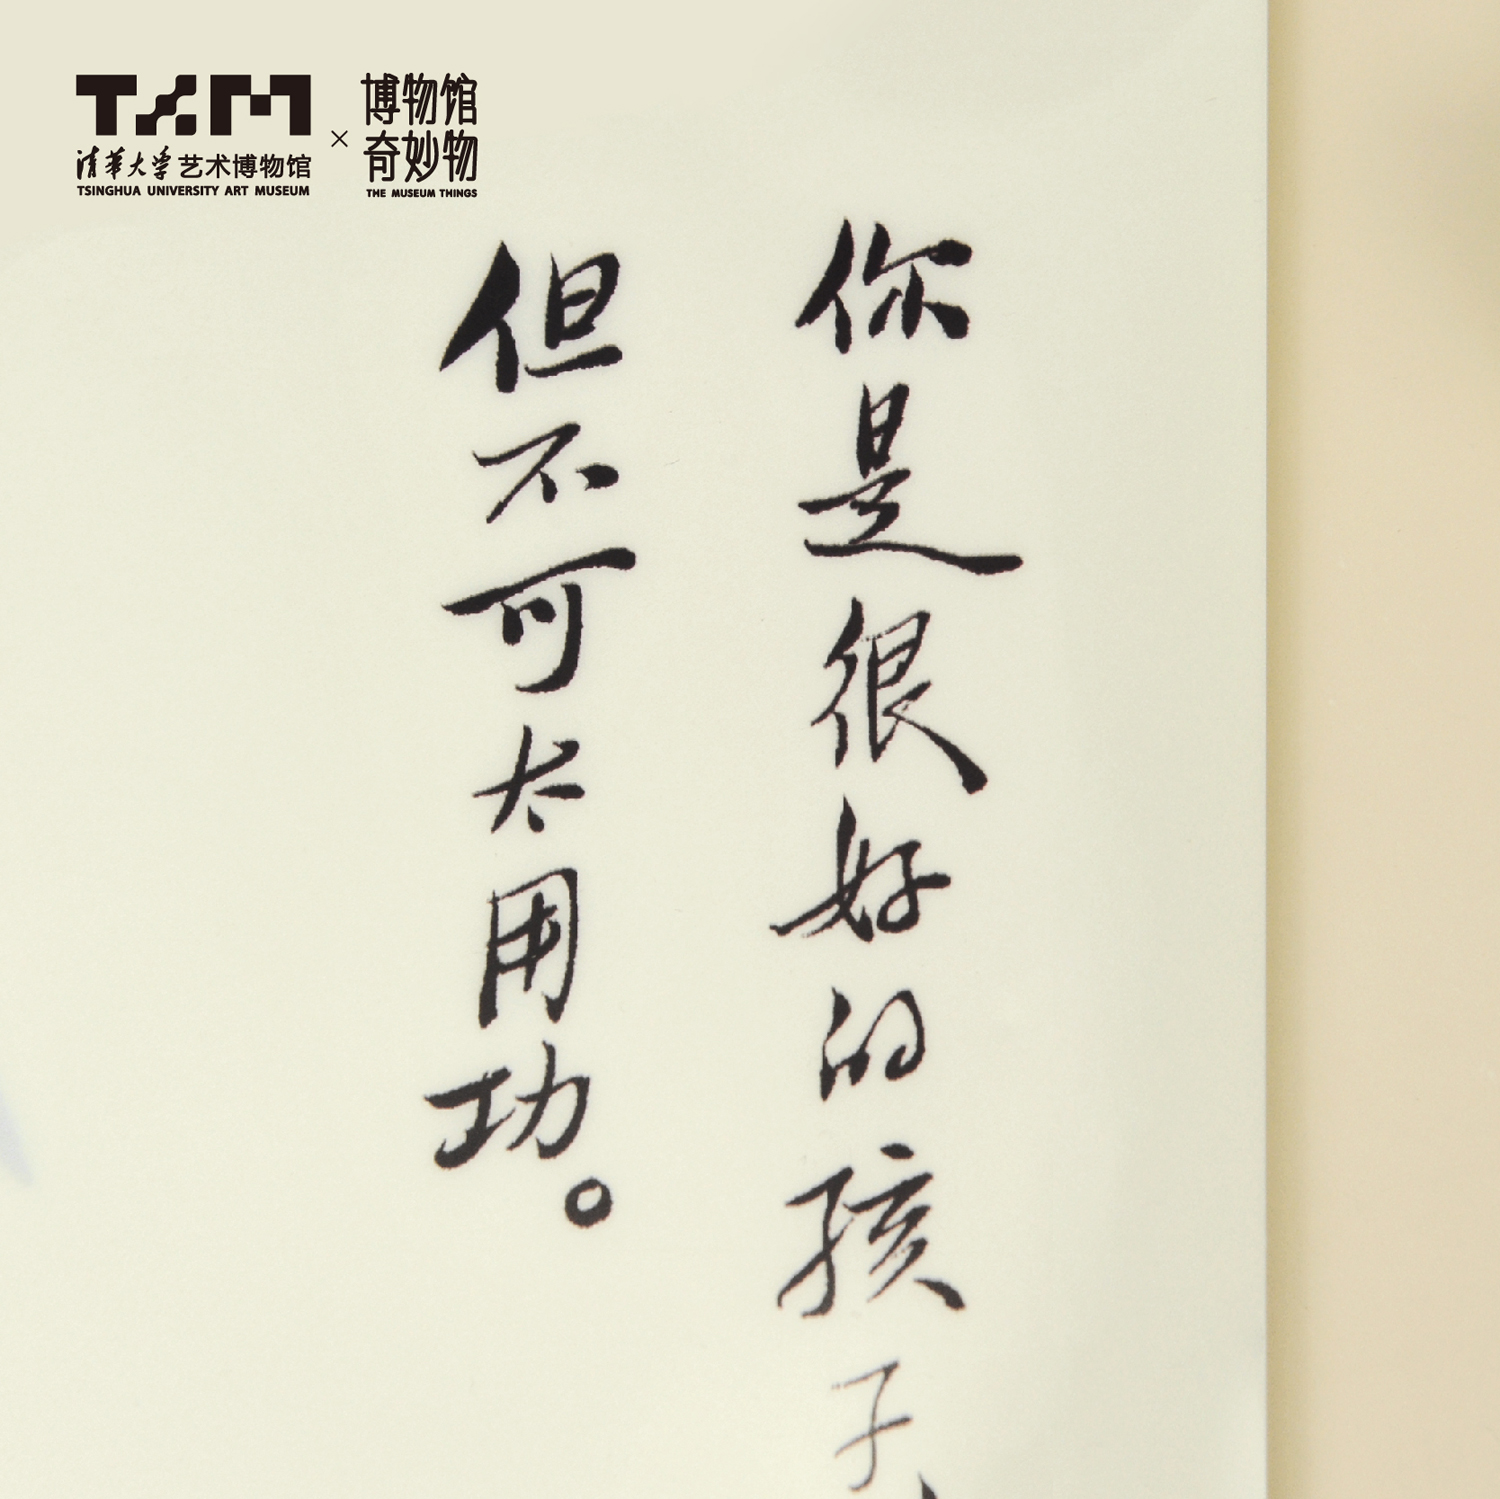 TAM
清华大学艺术博物馆
TSINGHUA UNIVERSITY ART MUSEUM
×
博物馆
奇妙物
THE MUSEUM THINGS
你是很好的孩子，
但不可太用功。